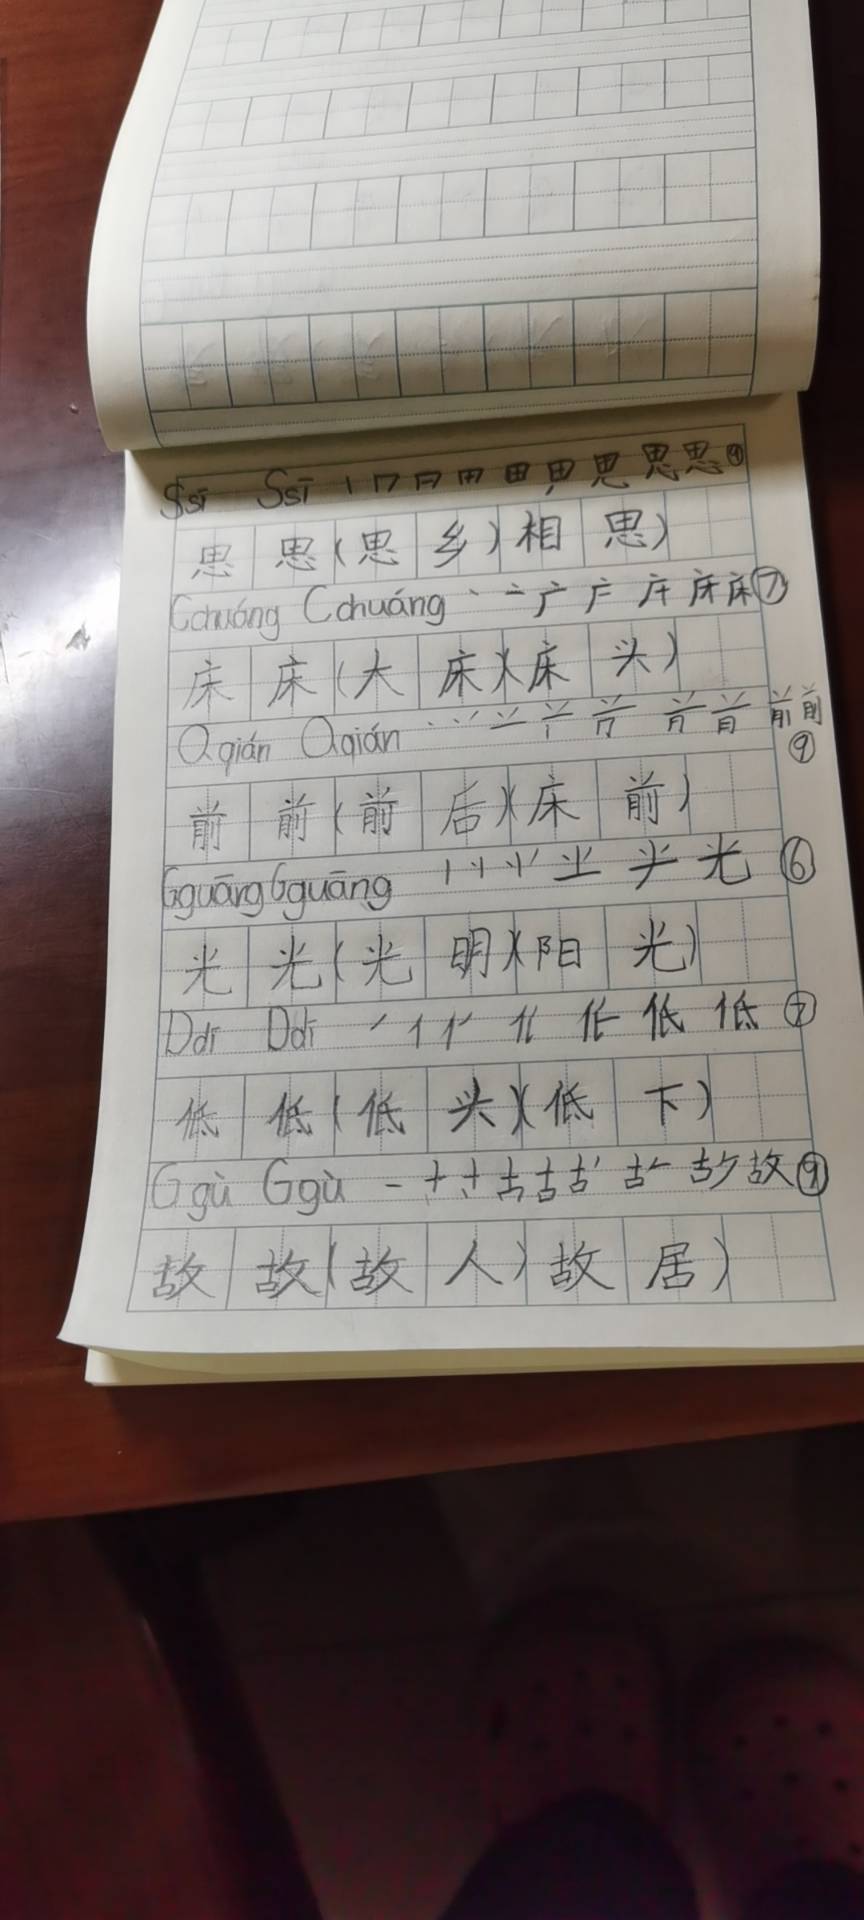 Ssī Ssī 丨 冂 日 田 田 思 思 思 ⑨
思 思(思 乡)相 思)
Cchuáng Cchuáng 丶 亠 广 庀 庄 床 床 ⑦
床 床(大 床)(床 头)
Qqián Qqián 丶 丷 䒑 前 前 ⑨
前 前(前 后)(床 前)
Gguāng Gguāng 丨 光 ⑥
光 光(光 明)(阳 光)
Ddī Ddī ノ 亻 低 低 ⑦
低 低(低 头)(低 下)
Ggù Ggù 一 十 古 古 故 ⑨
故 故(故 人)故 居)